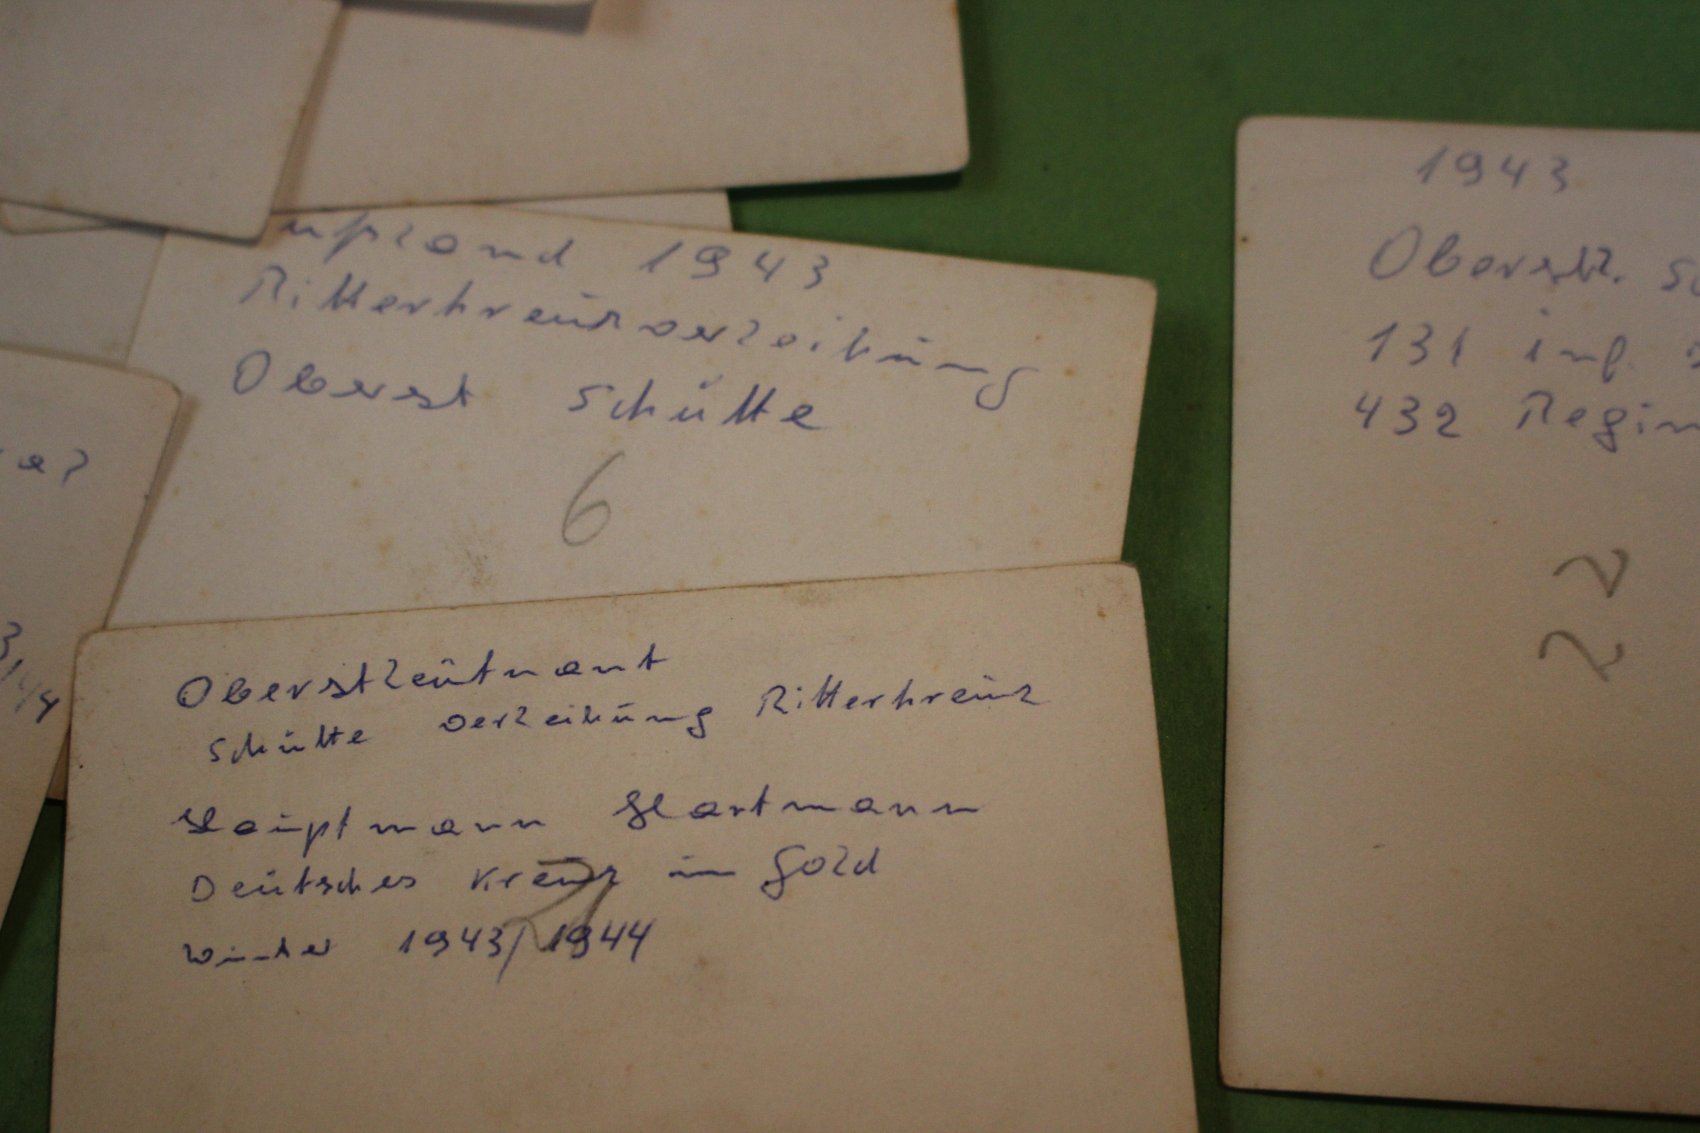 1943
Ritterkreüzverleihüng
Oberst Schütte
6
Oberstleütnant
Schütte verleihüng Ritterkreüz
Haüptmann Hartmann
Deütsches Kreüz in Gold
Winter 1943/1944
1943
Oberstlt.
131 inf.
432
22